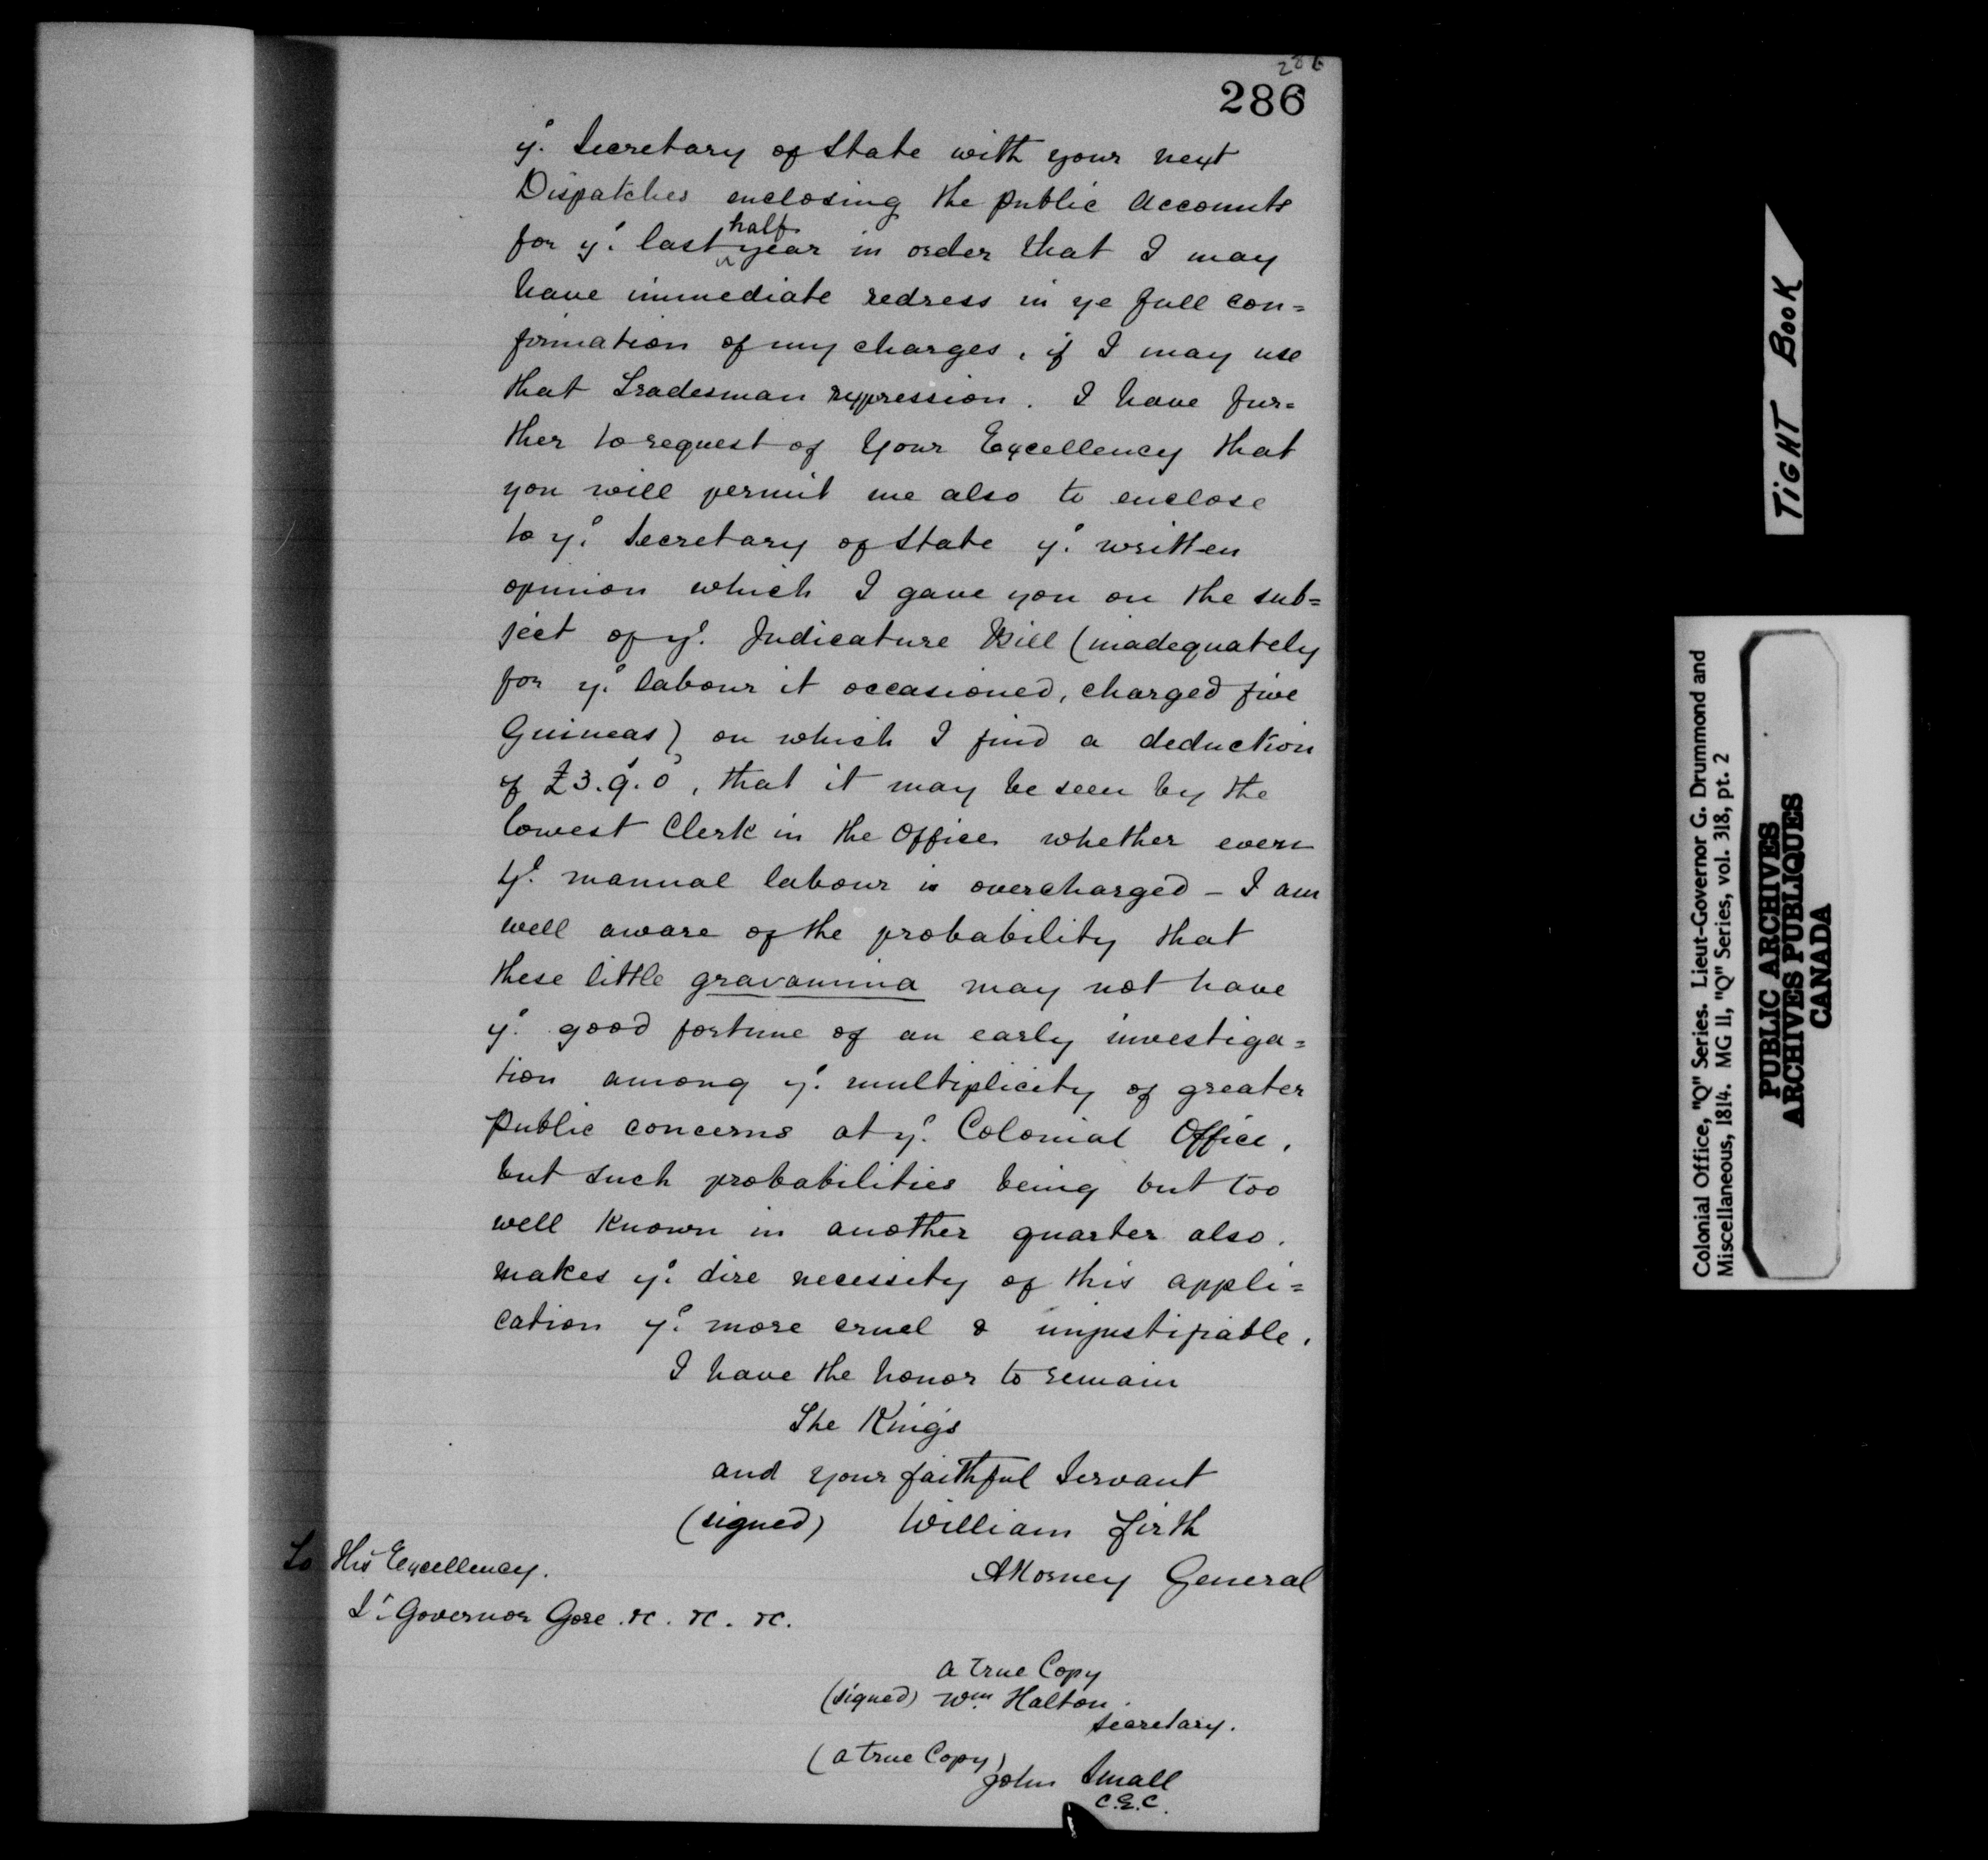 286
286
y.e Secretary of State with your next
Dispatches enclosing the public accounts
for y.e last half year in order that I may
have immediate redress in ye full con=
firmation of my charges, if I may use
that Tradesman expression. I have fur=
ther to request of Your Excellency that
you will permit me also to enclose
to y.e Secretary of State y.e written
opinion which I gave you on the sub=
ject of y.e Judicature Bill (inadequately
for y.e labour it occasioned, charged five
Guineas) on which I find a deduction
of £3.9.0, that it may be seen by the
lowest Clerk in the Office whether even
y.e manual labour is overcharged - I am
well aware of the probability that
these little gravamina may not have
y.e good fortune of an early investiga=
tion among y.e multiplicity of greater
public concerns at y.e Colonial Office,
but such probabilities being but too
well known in another quarter also.
makes y.e dire necessity of this appli=
cation y.e more cruel & unjustifiable.
I have the honor to remain
The King's
and your faithful Servant
(signed) William Firth
Attorney General
To His Excellency.
Lt. Governor Gore &c. &c. &c.
a true Copy
(signed) Wm. Halton.
Secretary.
(a true Copy)
John Small
C.E.C.
TIGHT BOOK
Colonial Office, "Q" Series. Lieut-Governor G. Drummond and
Miscellaneous, 1814. MG 11, "Q" Series, vol. 318, pt. 2
PUBLIC ARCHIVES
ARCHIVES PUBLIQUES
CANADA